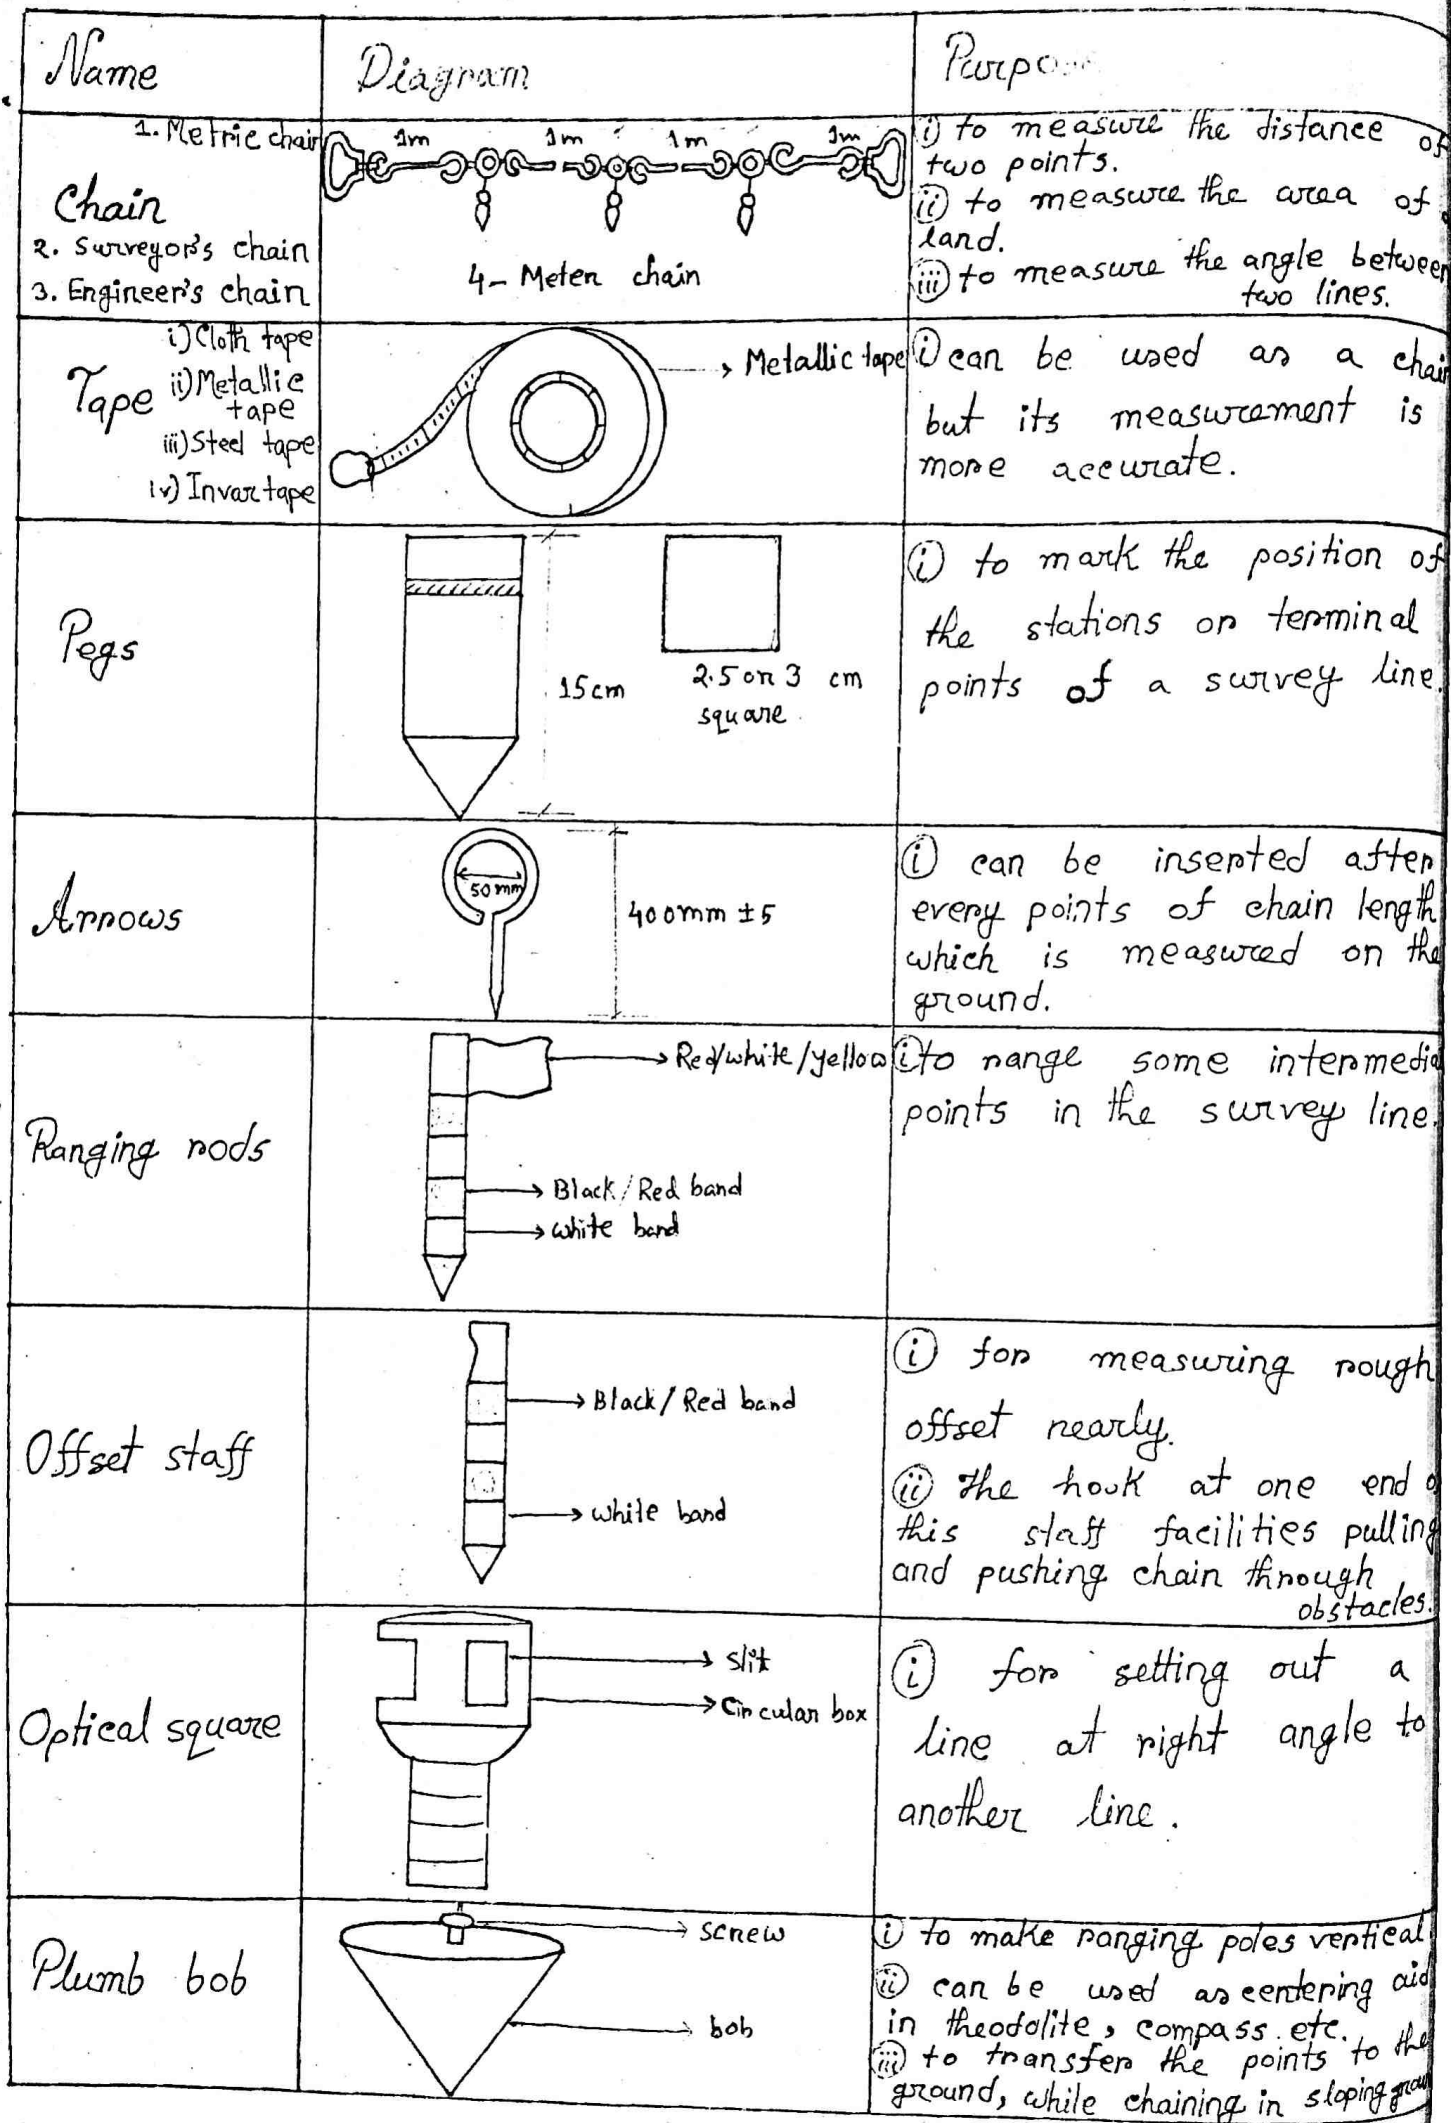 Name
Diagram
1. Metric chain
Chain
2. Surveyor's chain
3. Engineer's chain
1m 1m 1m 1m
4- Meter chain
i) to measure the distance of
two points.
ii) to measure the area of
land.
iii) to measure the angle between
two lines.
Tape
i) Cloth tape
ii) Metallic
tape
iii) Steel tape
iv) Invar tape
Metallic tape
i) can be used as a chain
but its measurement is
more accurate.
Pegs
15cm
2.5 or 3 cm
square
i) to mark the position of
the stations or terminal
points of a survey line.
Arrows
50 mm
400mm ±5
i) can be inserted after
every points of chain length
which is measured on the
ground.
Ranging rods
Red/white/yellow
Black/Red band
white band
i) to range some intermedia
points in the survey line.
Offset staff
Black/Red band
white band
i) for measuring rough
offset nearly.
ii) the hook at one end
this staff facilities pulling
and pushing chain through
obstacles.
Optical square
slit
Circular box
i) for setting out a
line at right angle to
another line.
Plumb bob
screw
bob
i) to make ranging poles vertical
ii) can be used as centering aid
in theodolite, compass etc.
iii) to transfer the points to the
ground, while chaining in sloping